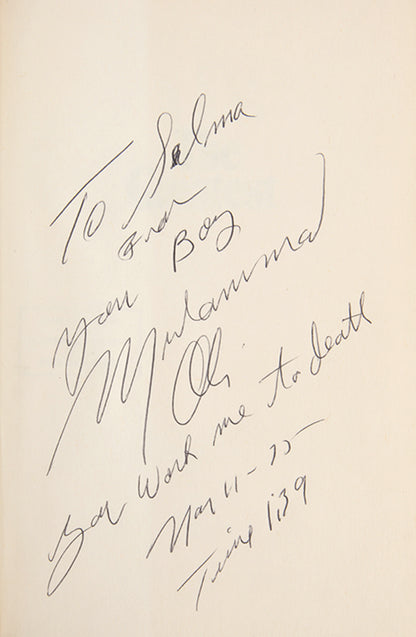 To Selma
From
your Boy
Muhammad
Ali
you work me to death
Nov 11-75
Time 1:39